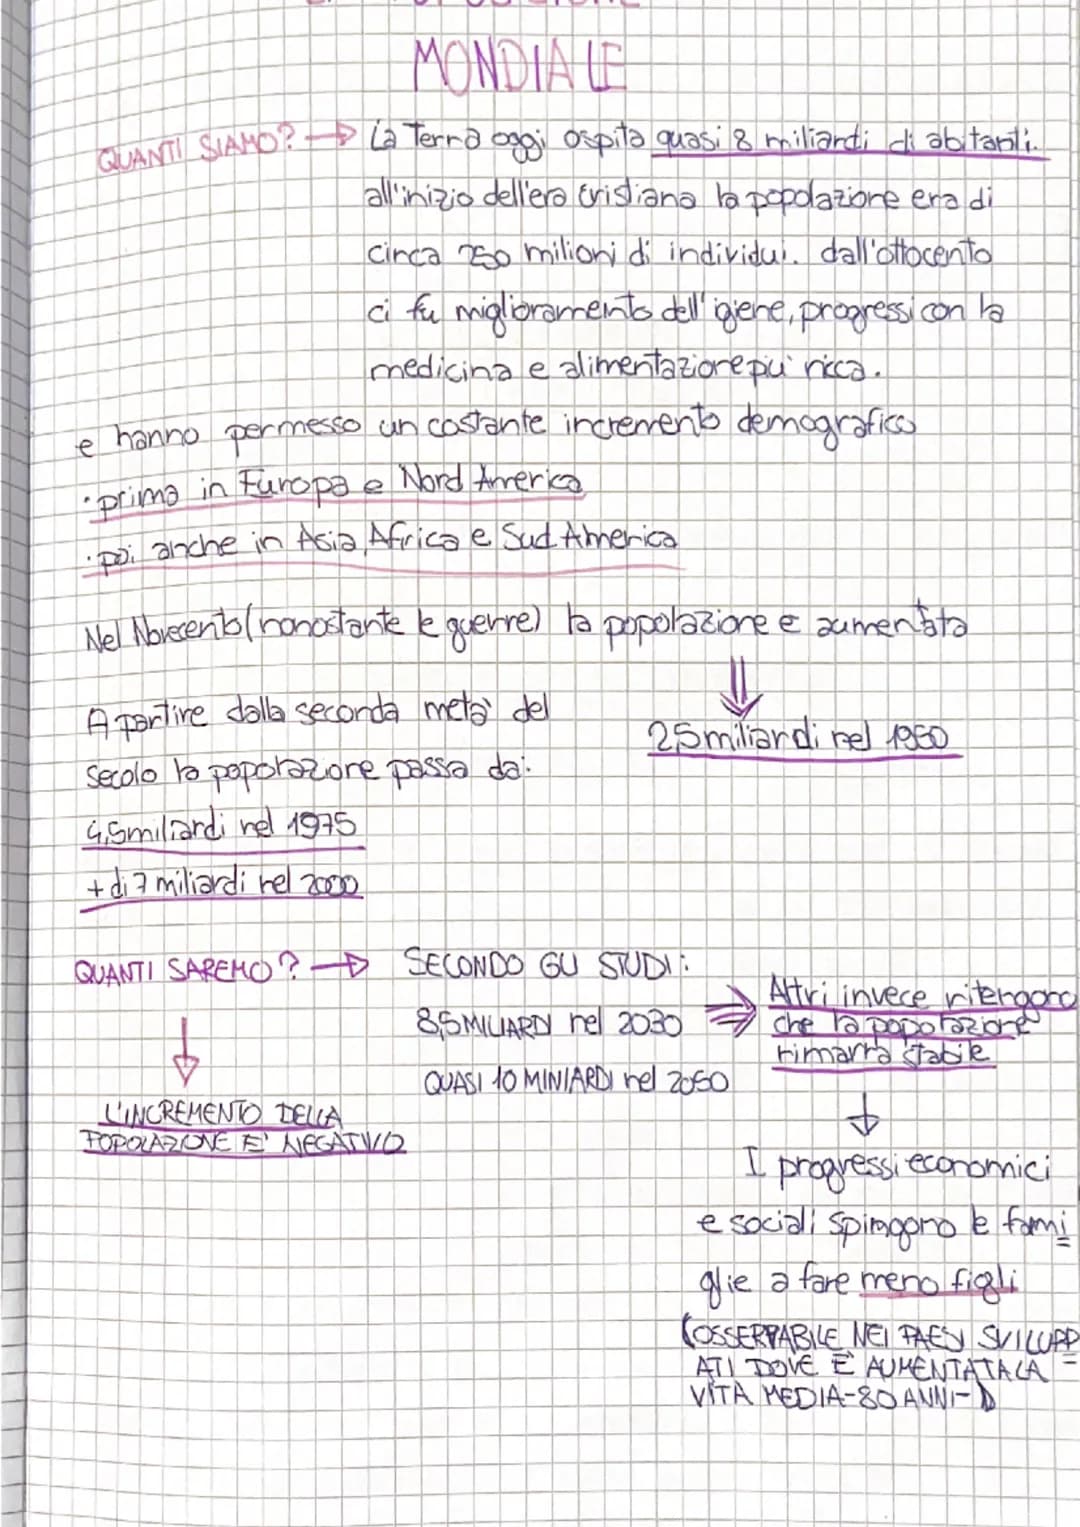 MONDIALE
QUANTI SIAMO? → La Terra oggi ospita quasi 8 miliardi di abitanti.
all'inizio dell'era cristiana la popolazione era di
circa 250 milioni di individui. dall'ottocento
ci fu miglioramento dell'igiene, progressi con la
medicina e alimentazione piu' ricca.
e hanno permesso un costante incremento demografico
· prima in Europa e Nord America
· poi anche in Asia, Africa e Sud America
Nel Novecento (nonostante le guerre) la popolazione e aumentata
⇓
2,5 miliardi nel 1950
A partire dalla seconda meta' del
secolo la popolazione passa da:
4,5 miliardi nel 1975
+ di 7 miliardi nel 2000
QUANTI SAREMO? → SECONDO GLI STUDI:
8,5 MILIARDI nel 2030 ⇒
QUASI 10 MINIARDI nel 2050
Altri invece ritengono
che la popolazione
rimarra stabile
↓
L'INCREMENTO DELLA
POPOLAZIONE E' NEGATIVO
↓
I progressi economici
e sociali spingono le fami
glie a fare meno figli
(OSSERVABILE NEI PAESI SVILUPP
ATI DOVE È AUMENTATA LA
VITA MEDIA-80 ANNI-)